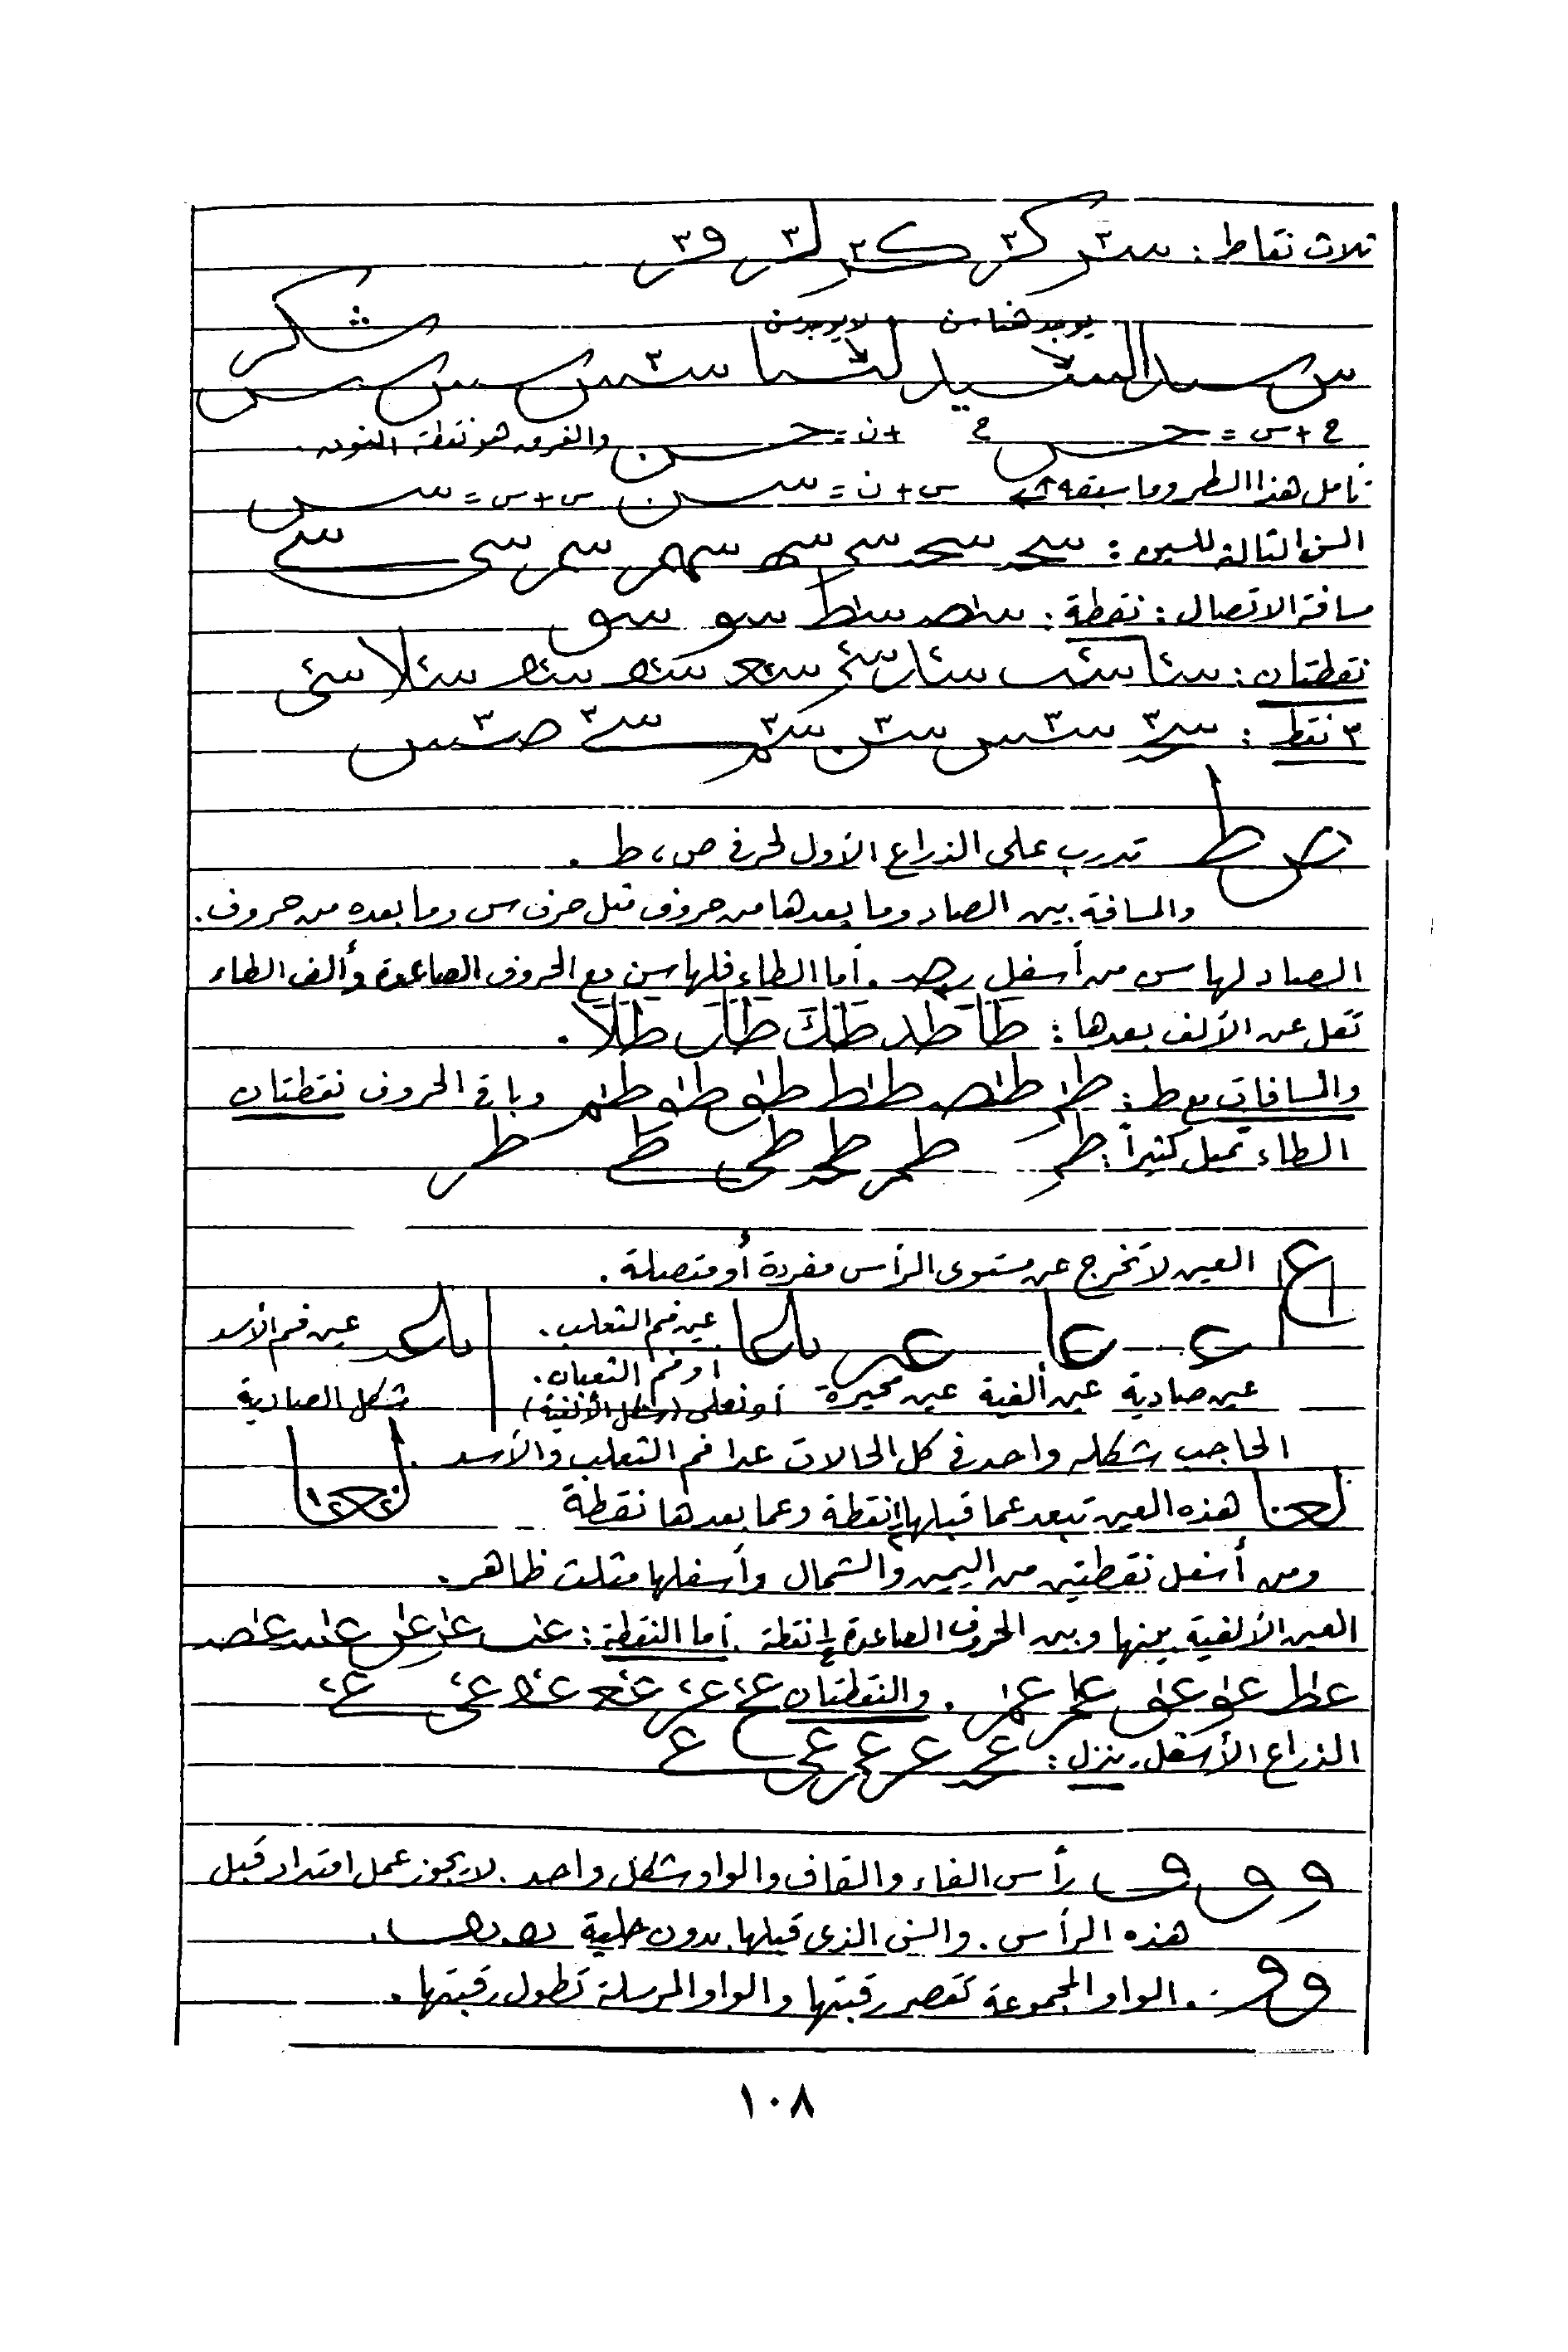 ثلاث نقاط : سر كر كر لر ور
يوجد هنا سن لا يوجد سن
س سد السيد لسا سس سس شكر
ح + س = حس ح + ن = حسن والفرق هو نقطة النون .
تأمل هذا السطر وما سبقه س + ن = سن س + س = سس
السن التالية للسين : سحد سحد سم سمه سمهر سمر سمى سے
مسافة الاتصال : نقطة : سصد سط سو سو
نقطتان : سا سب سار سم سعد سه سه سلا سى
٣ نقط : سح سس سن سم سے صس
ص ط تدرب على الذراع الأول لحرفي ص ، ط .
والمسافة بين الصاد وما بعدها من حروف مثل حرف س وما بعده من حروف .
الصاد لها سن من أسفل صد . أما الطاء فلها سن مع الحروف الصاعدة وألف الطاء
تقل عن الألف بعدها : طا طد طك طاب طلا .
والمسافات مع ط : طر طصد طط طو طو طم وباقي الحروف نقطتان
الطاء تميل كثيراً : طم طمر طحد طى طے طر
ع العين لا تخرج عن مستوى الرأس مفردة أو متصلة .
ع عا عر لعا عين فم الثعلب . لعد عين فم الأسد
أو فم الثعبان .
عين صادية عين ألفية عين محيرة أو نعلى (بشكل الألفية) بشكل الصادية
الحاجب شكله واحد في كل الحالات عدا فم الثعلب والأسد .
لعا هذه العين تبعد عما قبلها نقطة وعما بعدها نقطة
ومن أسفل نقطتين من اليمين والشمال وأسفلها مثلث ظاهر .
العين الألفية بينها وبين الحروف الصاعدة نقطة . أما النقطة : عب عر عل عسد عصد
عط عو عو عكر عم . والنقطتان عن عر ععد عه عى عے
الذراع الأسفل ينزل : عحد عر عمر عى ع
و و ق ف رأس الفاء والقاف والواو شكل واحد . لا يجوز عمل امتداد قبل
هذه الرأس . والسن الذي قبلها بدون حلية
و و . الواو المجموعة تقصر رقبتها والواو المرسلة تطول رقبتها .
١٠٨